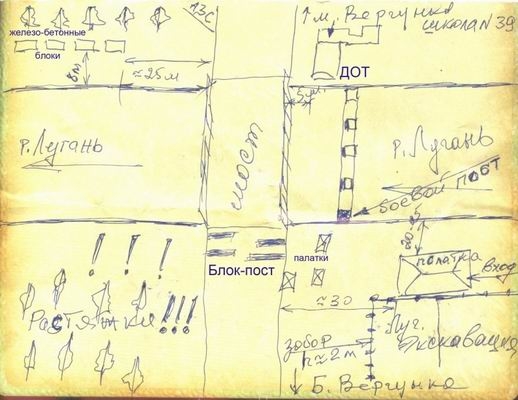 ТЗС
↑ м. Вергунка
школа N 39
железо-бетонные
блоки
ДОТ
8м
≈25м
5м
р. Лугань
мост
р. Лугань
боевой пост
Блок-пост
палатки
палатка
вход
20-25
≈30
РАСТЯЖКИ!!!
! ! !
забор
h≈2м
Луг.
↓ Б. Вергунка